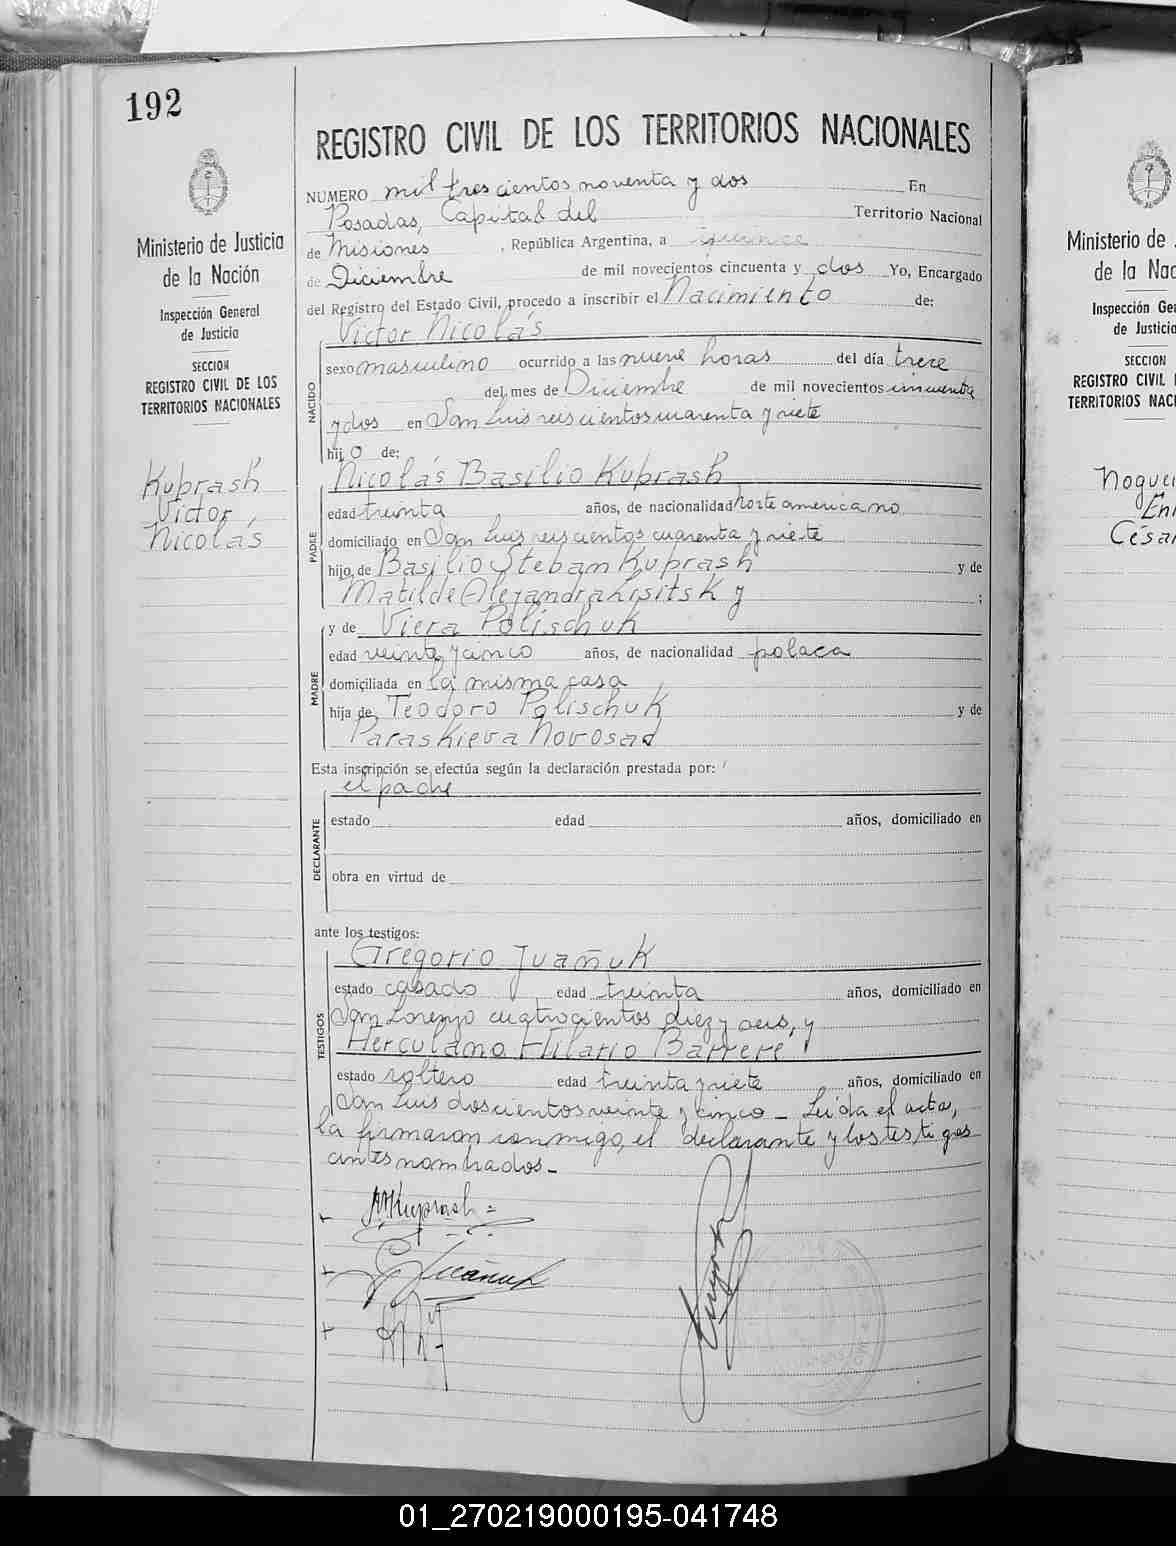 192
REGISTRO CIVIL DE LOS TERRITORIOS NACIONALES
NÚMERO mil trescientos noventa y dos En
Posadas, Capital del Territorio Nacional
de Misiones, República Argentina, a quince
de Diciembre de mil novecientos cincuenta y dos Yo, Encargado
del Registro del Estado Civil, procedo a inscribir el Nacimiento de:
Victor Nicolás
NACIDO
sexo masculino ocurrido a las nueve horas del día trece
del mes de Diciembre de mil novecientos cincuenta
y dos en San Luis seiscientos cuarenta y siete
hijo de:
Nicolás Basilio Kuprash
PADRE
edad treinta años, de nacionalidad norteamericano
domiciliado en San Luis seiscientos cuarenta y siete
hijo de Basilio Steban Kuprash y de
Matilde Alejandra Kisitsky ;
y de Viera Polischuk
MADRE
edad veinte y cinco años, de nacionalidad polaca
domiciliada en la misma casa
hija de Teodoro Polischuk y de
Paraskieva Novosad
Esta inscripción se efectúa según la declaración prestada por:
el padre
DECLARANTE
estado edad años, domiciliado en
obra en virtud de
ante los testigos:
Gregorio Juañuk
TESTIGOS
estado casado edad treinta años, domiciliado en
San Lorenzo cuatrocientos diez y seis, y
Herculano Hilario Barrere
estado soltero edad treinta y siete años, domiciliado en
San Luis doscientos veinte y cinco - Leida el acta,
la firmaron conmigo, el declarante y los testigos
antes nombrados -
Kuprash
Juañuk
Ministerio de Justicia
de la Nación
Inspección General
de Justicia
SECCION
REGISTRO CIVIL DE LOS
TERRITORIOS NACIONALES
Kuprash
Victor
Nicolás
Ministerio de
de la Nac
Inspección Ge
de Justicia
SECCION
REGISTRO CIVIL
TERRITORIOS NACI
Noguei
En
César
01_270219000195-041748